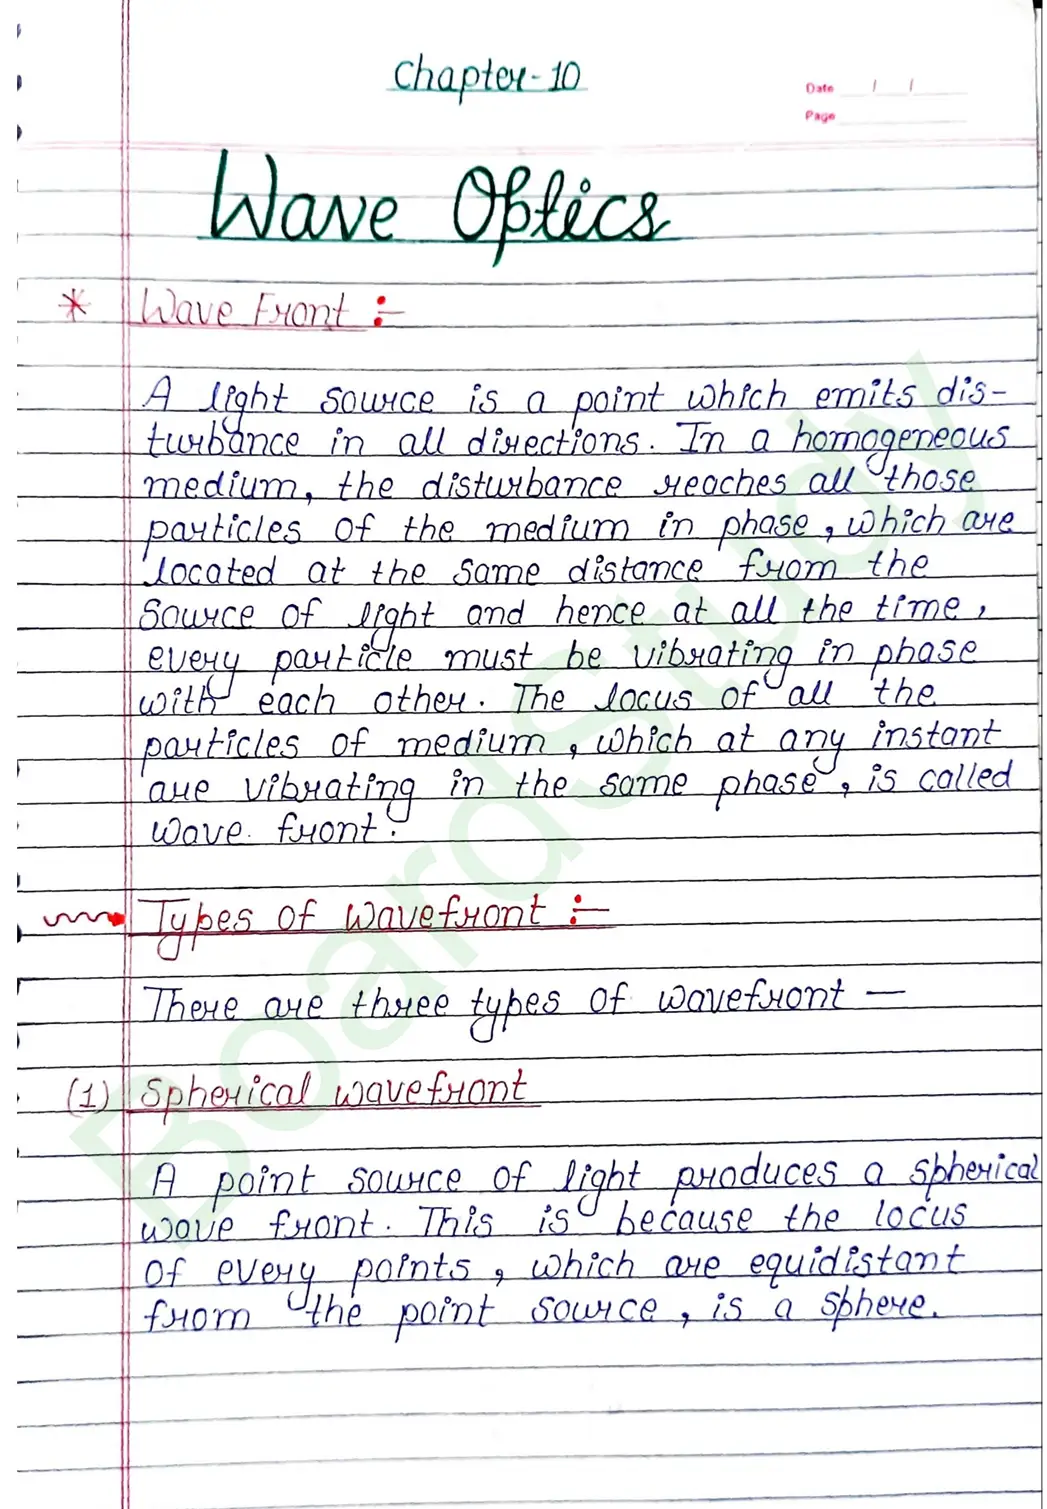 Chapter-10
Date / /
Page
Wave Optics
* Wave Front :-
A light source is a point which emits dis-
turbance in all directions. In a homogeneous
medium, the disturbance reaches all those
particles of the medium in phase, which are
located at the same distance from the
source of light and hence at all the time,
every particle must be vibrating in phase
with each other. The locus of all the
particles of medium, which at any instant
are vibrating in the same phase, is called
wave front.
Types of wavefront :-
There are three types of wavefront —
(1) Spherical wavefront
A point source of light produces a spherical
wave front. This is because the locus
of every points, which are equidistant
from the point source, is a sphere.
BoardStudy